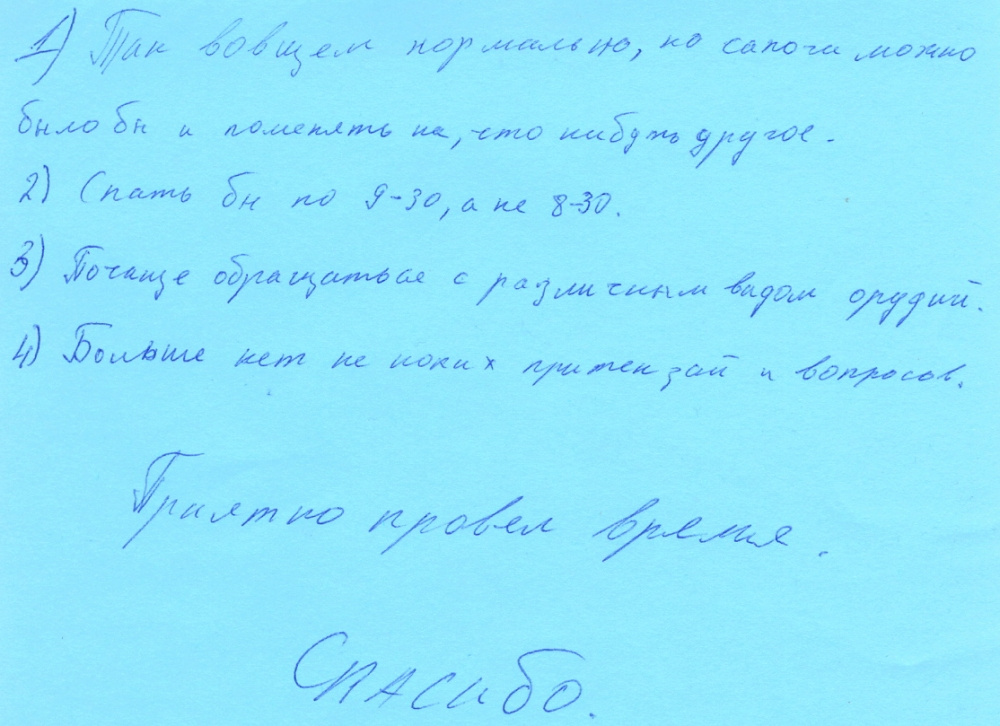 1) Так вовщем нормально, но сапоги можно
было бы и поменять на, что нибудь другое.
2) Спать бы по 9-30, а не 8-30.
3) Почаще обращаться с различным видом орудий.
4) Больше нет не коких притензай и вопросов.
Приятно провел время.
Спасибо.